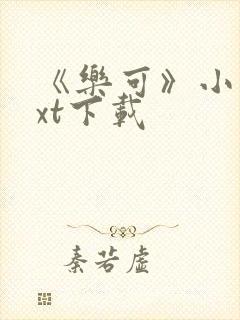 《樂可》小
xt下載
秦若虛